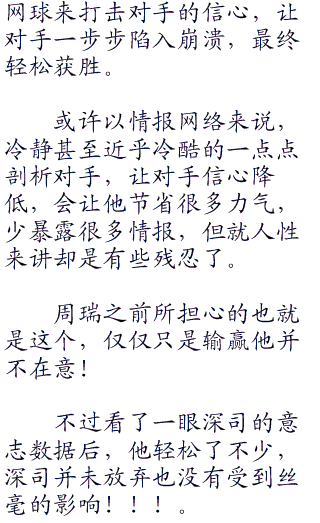 网球来打击对手的信心，让
对手一步步陷入崩溃，最终
轻松获胜。
或许以情报网络来说，
冷静甚至近乎冷酷的一点点
剖析对手，让对手信心降
低，会让他节省很多力气，
少暴露很多情报，但就人性
来讲却是有些残忍了。
周瑞之前所担心的也就
是这个，仅仅只是输赢他并
不在意！
不过看了一眼深司的意
志数据后，他轻松了不少，
深司并未放弃也没有受到丝
毫的影响！！！。